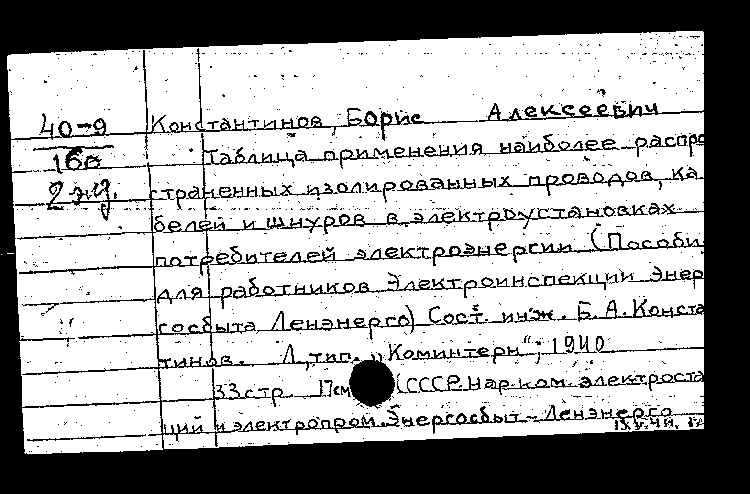 40-9
Константинов, Борис Алексеевич
16в
Таблица применения наиболее распро
2 эц.
страненных изолированных проводов, ка
белей и шнуров в электроустановках
потребителей электроэнергии (Пособи
для работников Электроинспекции Энер
госбыта Ленэнерго) Сост. инж. Б. А. Конста
тинов. Л., тип. „Коминтерн“, 1940
33 стр. 17 см (СССР. Нар. ком. электроста
ций и электропром. Энергосбыт - Ленэнерго